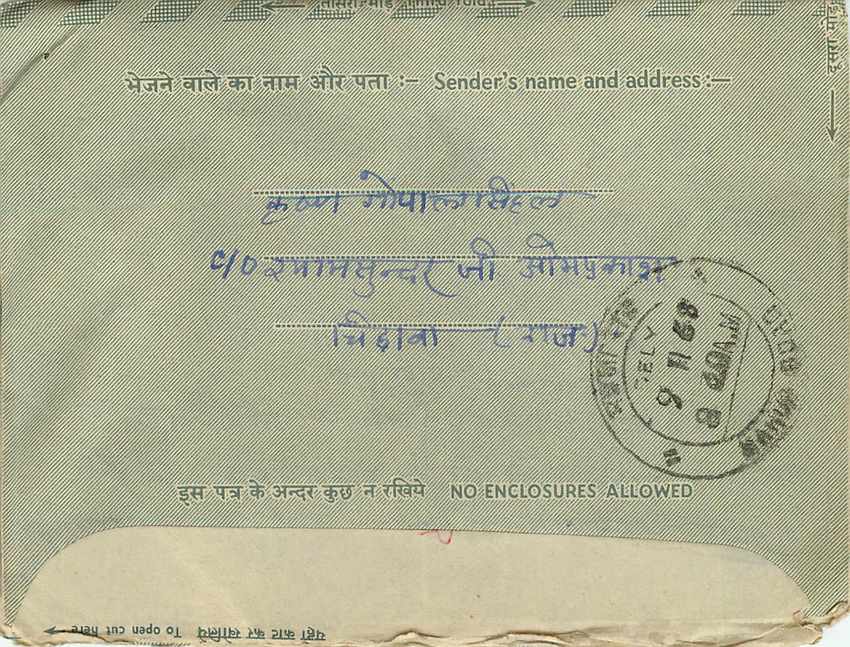 दूसरा मोड़
भेजने वाले का नाम और पता :- Sender's name and address:-
कृष्ण गोपाल सिंहल
C/O श्यामसुन्दर जी ओमप्रकाश
चिड़ावा (राज.)
DELY
9 11 68
इस पत्र के अन्दर कुछ न रखिये NO ENCLOSURES ALLOWED
यहाँ काट कर खोलिये To open cut here